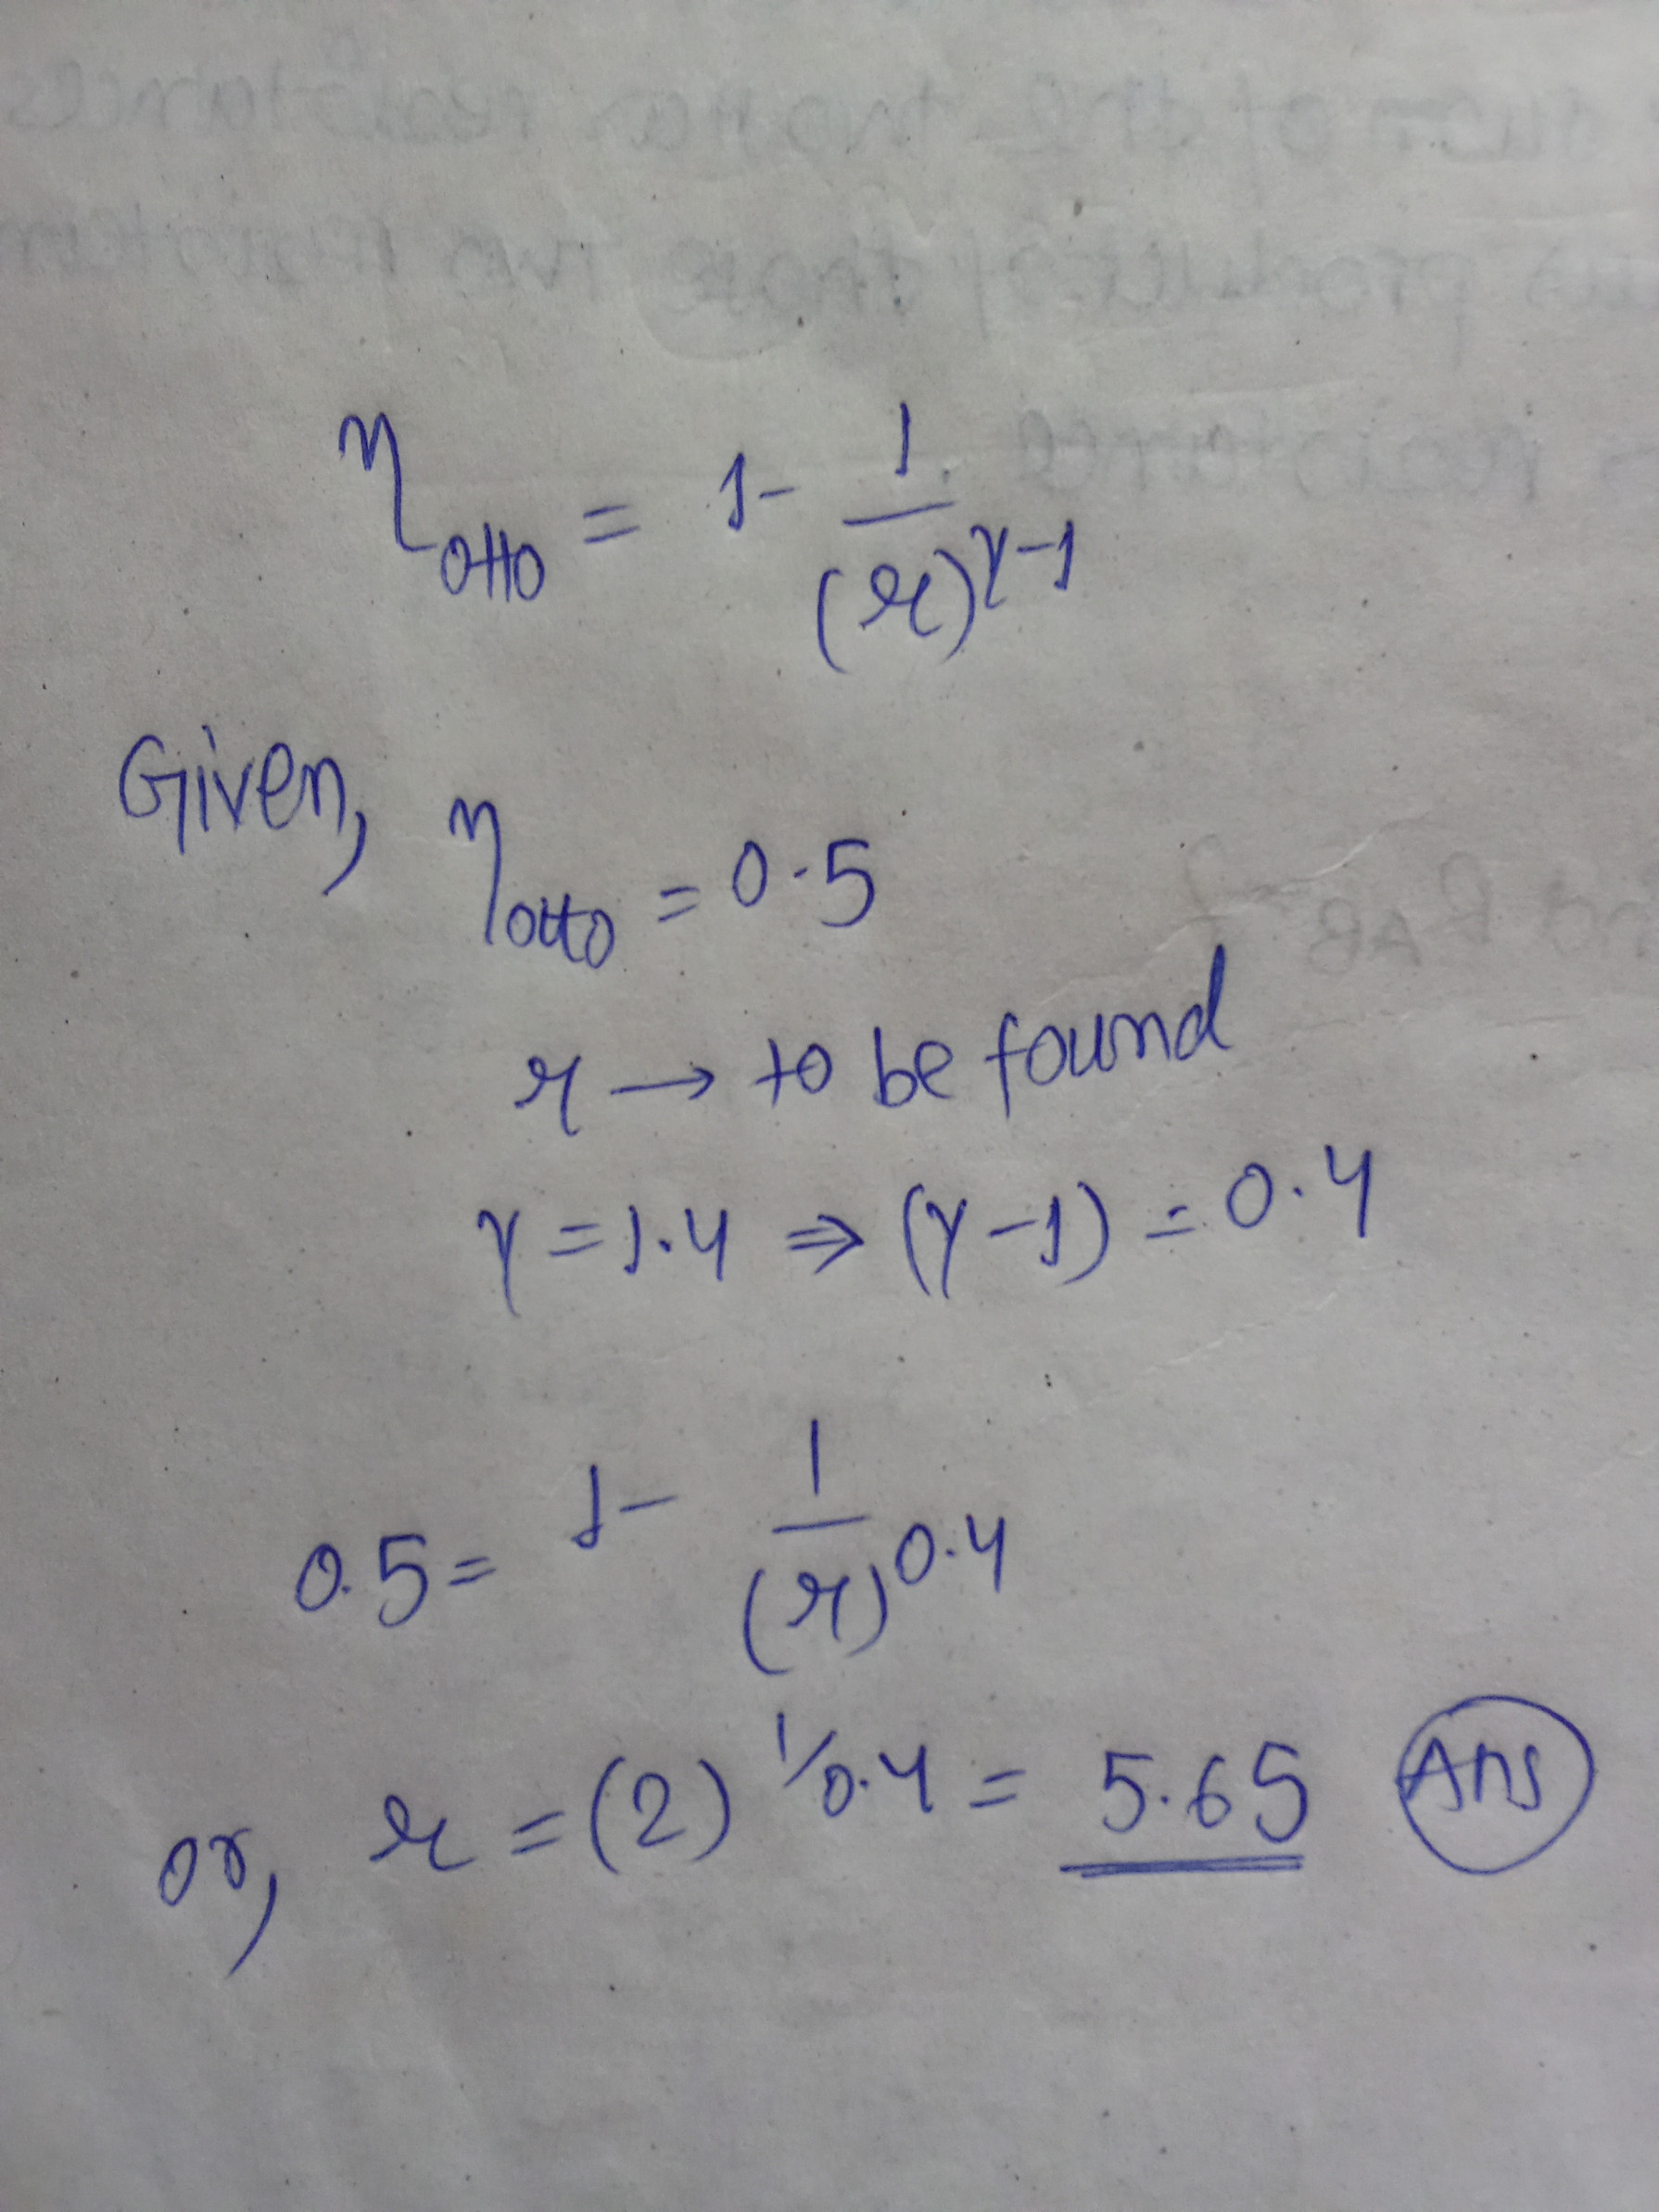 η_otto = 1 - 1/(r)^γ-1
Given, η_otto = 0.5
r → to be found
γ = 1.4 ⇒ (γ-1) = 0.4
0.5 = 1 - 1/(r)^0.4
or, r = (2)^1/0.4 = 5.65 Ans